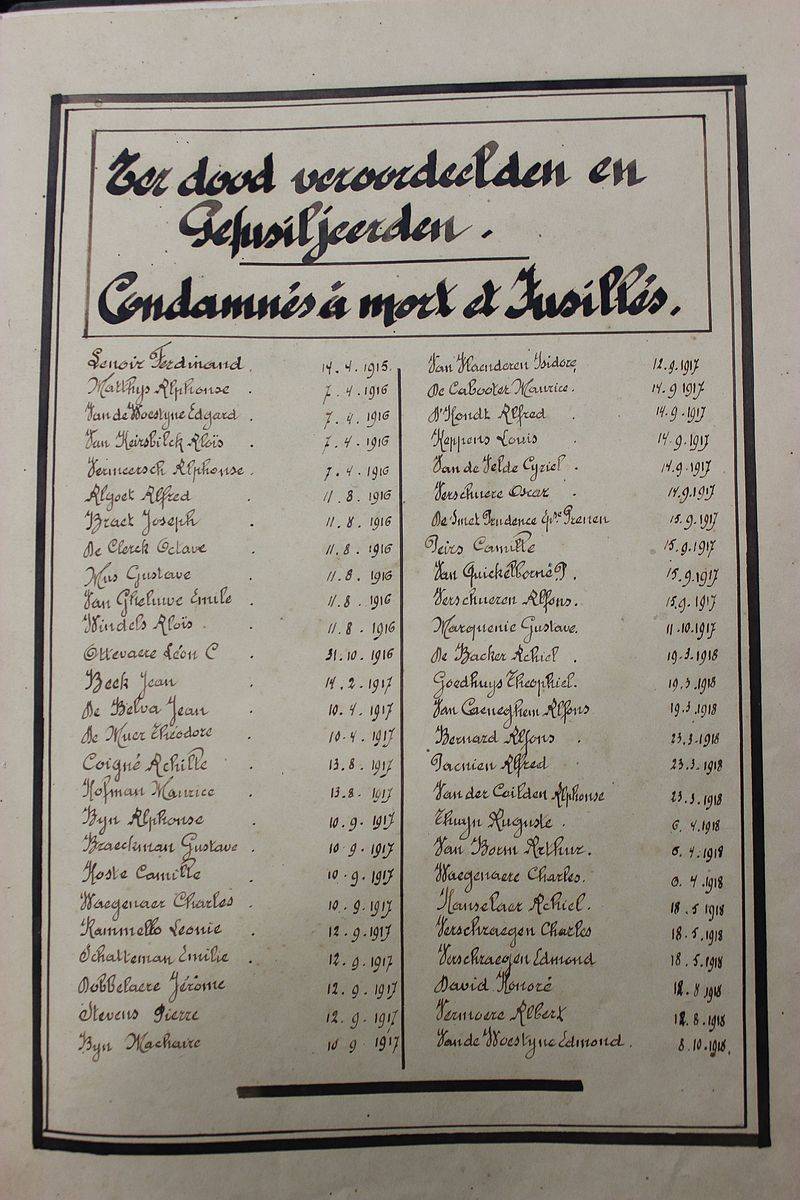 Ter dood veroordeelden en
Gefusiljeerden.
Condamnés à mort et Fusillés.
Lenoir Ferdinand. 14.4.1915.
Matthys Alphonse. 7.4.1916
Van de Woestyne Edgard. 7.4.1916
Van Keirsbilck Aloïs. 7.4.1916
Vermeersch Alphonse. 7.4.1916
Algoet Alfred. 11.8.1916
Braet Joseph. 11.8.1916
De Clerck Octave. 11.8.1916
Mus Gustave. 11.8.1916
Van Gheluwe Emile. 11.8.1916
Windels Aloïs. 11.8.1916
Ottevaere Léon C. 31.10.1916
Beck Jean. 14.2.1917
De Belva Jean. 10.4.1917
De Muer Théodore. 10.4.1917
Coigné Achille. 13.8.1917
Hofman Maurice. 13.8.1917
Byn Alphonse. 10.9.1917
Braeckman Gustave. 10.9.1917
Hoste Camille. 10.9.1917
Waegenaer Charles. 10.9.1917
Rammello Leonie. 12.9.1917
Schatteman Emilie. 12.9.1917
Dobbelaere Jérôme 12.9.1917
Stevens Pierre 12.9.1917
Byn Machaire 10.9.1917
Van Vlaenderen Isidore 12.9.1917
De Cabooter Maurice. 14.9.1917
D'Hondt Alfred. 14.9.1917
Heppens Louis. 14.9.1917
Van de Velde Cyriel. 14.9.1917
Verschuere Oscar. 14.9.1917
De Smet Prudence Ep.se Prenen 15.9.1917
Peirs Camille 15.9.1917
Van Quickelborné P. 15.9.1917
Verschueren Alfons. 15.9.1917
Marquenie Gustave. 11.10.1917
De Backer Achiel. 19.3.1918
Goedhuys Theophiel. 19.3.1918
Van Caeneghem Alfons 19.3.1918
Bernard Alfons. 23.3.1918
Pacnien Alfred 23.3.1918
Van der Coilden Alphonse 23.3.1918
Thuyn Auguste. 6.4.1918
Van Borm Arthur. 6.4.1918
Waegenaere Charles. 6.4.1918
Hanselaer Achiel. 18.5.1918
Verschraegen Charles 18.5.1918
Verschraegen Edmond 18.5.1918
David Honoré 12.8.1918
Vermoere Albert 12.8.1918
Van de Woestyne Edmond. 8.10.1918.